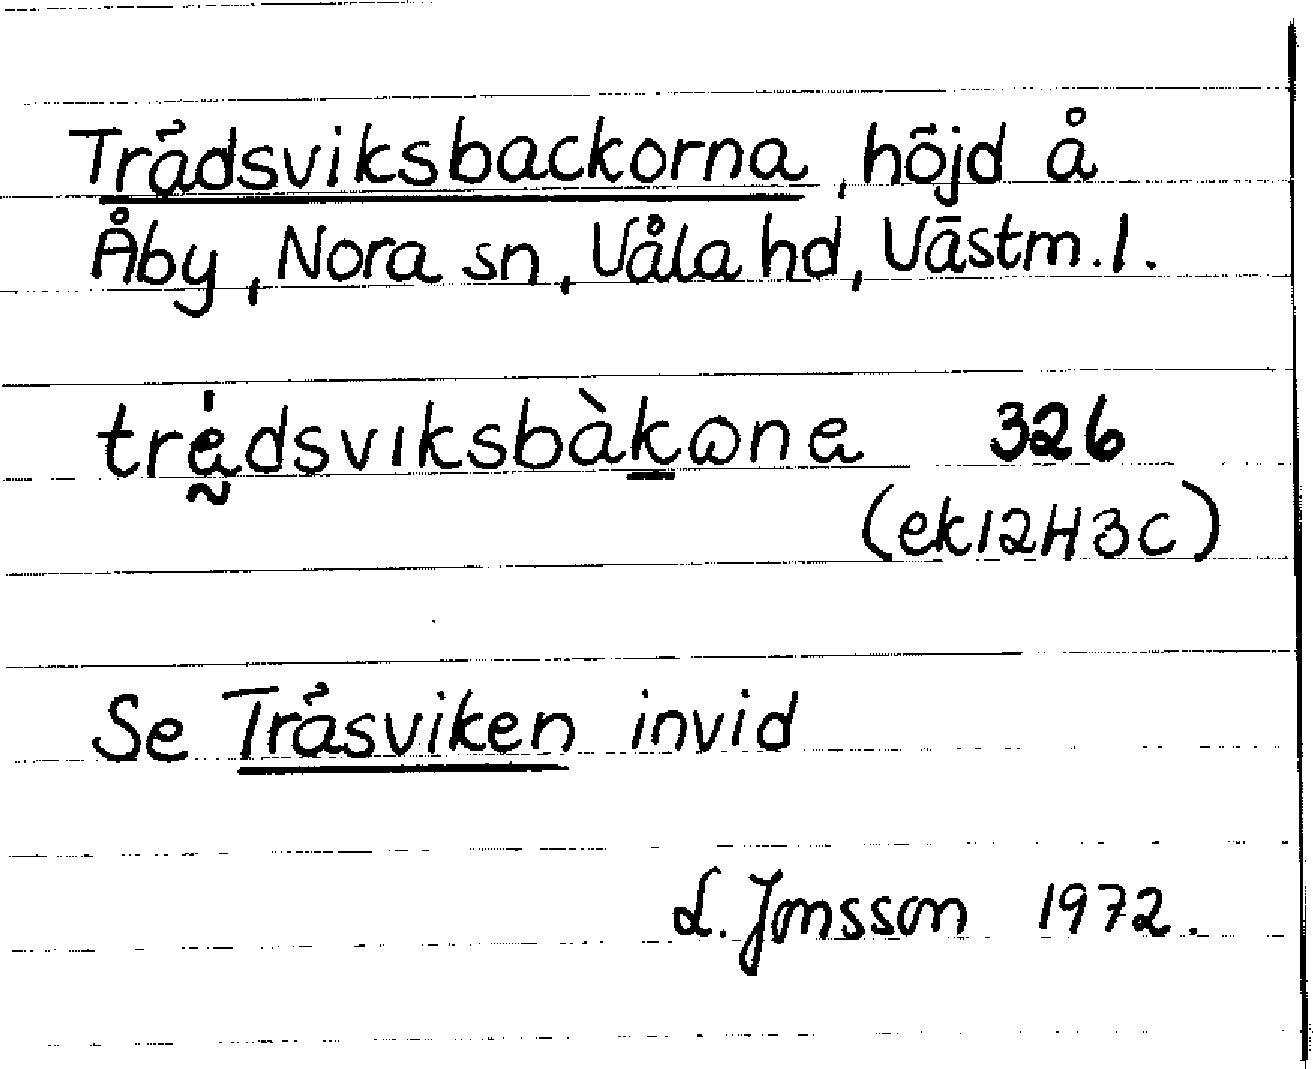 Trådsviksbackorna, höjd å
Åby, Nora sn, Våla hd, Västm. l.
326
(ek12H3C)
Se Tråsviken invid
L. Jonsson 1972.